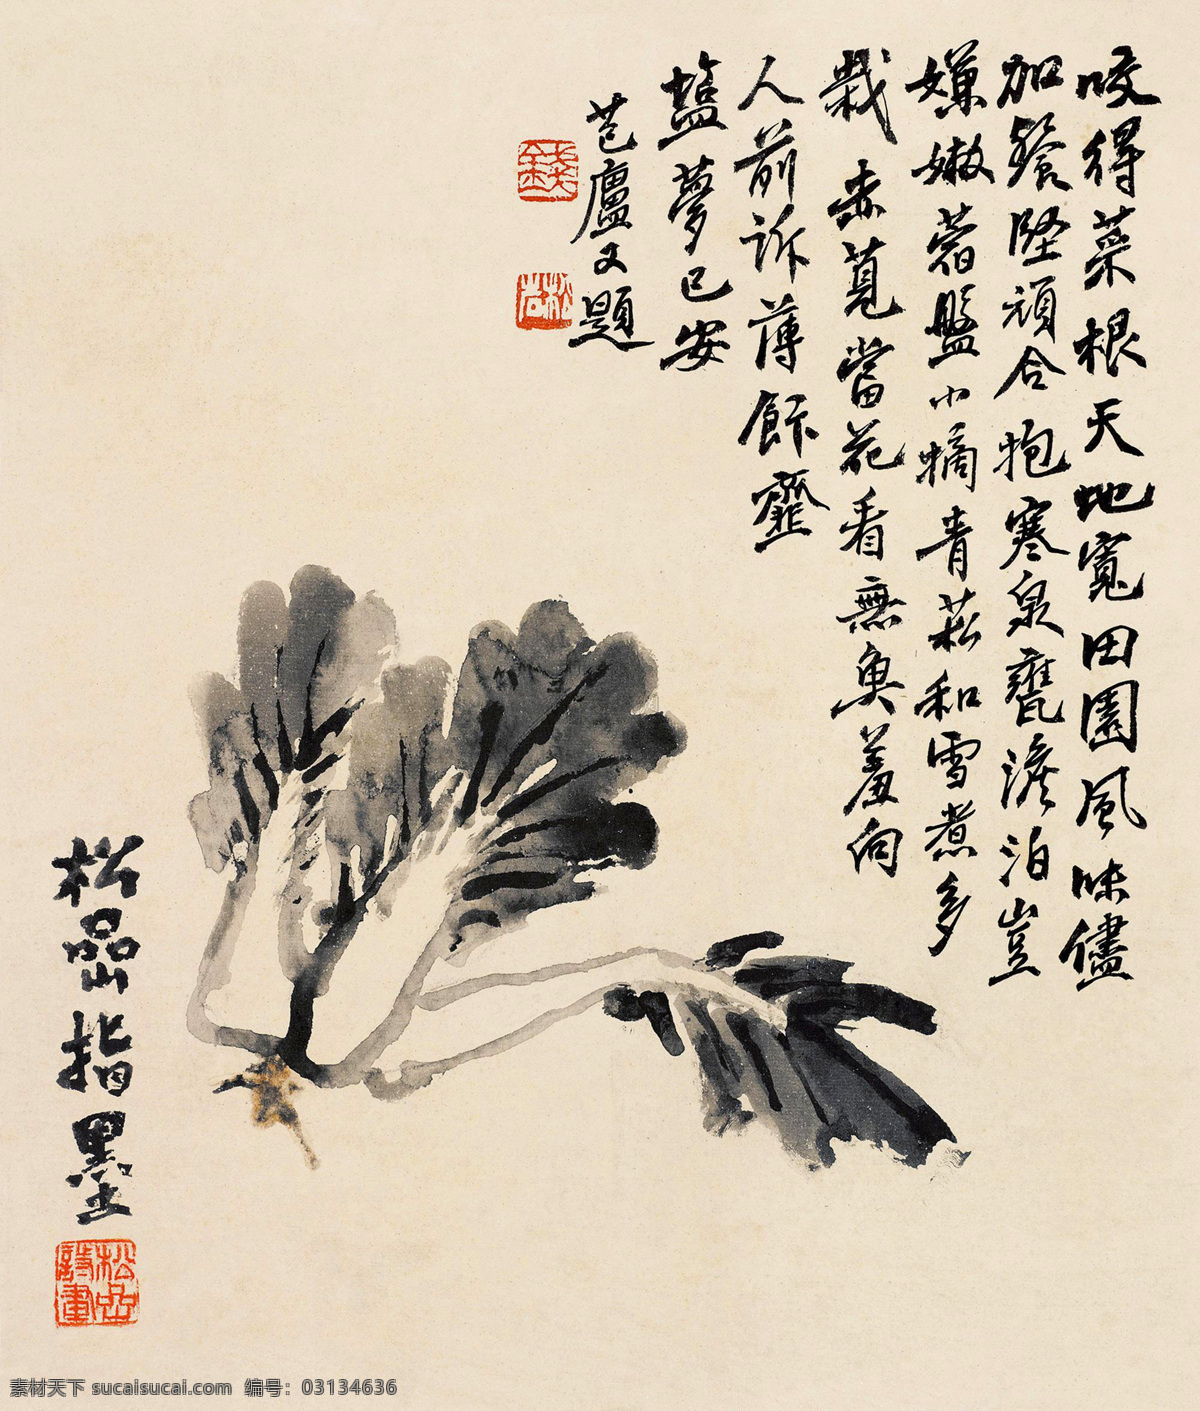 咬得菜根天地寬田園風味儘
加餐堅頑合抱寒泉甕澹泊豈
嫌嫩蓿盤小摘青菘和雪煮多
栽赤莧當花看無魚羞向
人前訴薄飰虀
鹽夢已安
芑廬又題
松嵒指墨
松嵒詩畫
素材天下 sucaisucai.com 编号：03134636